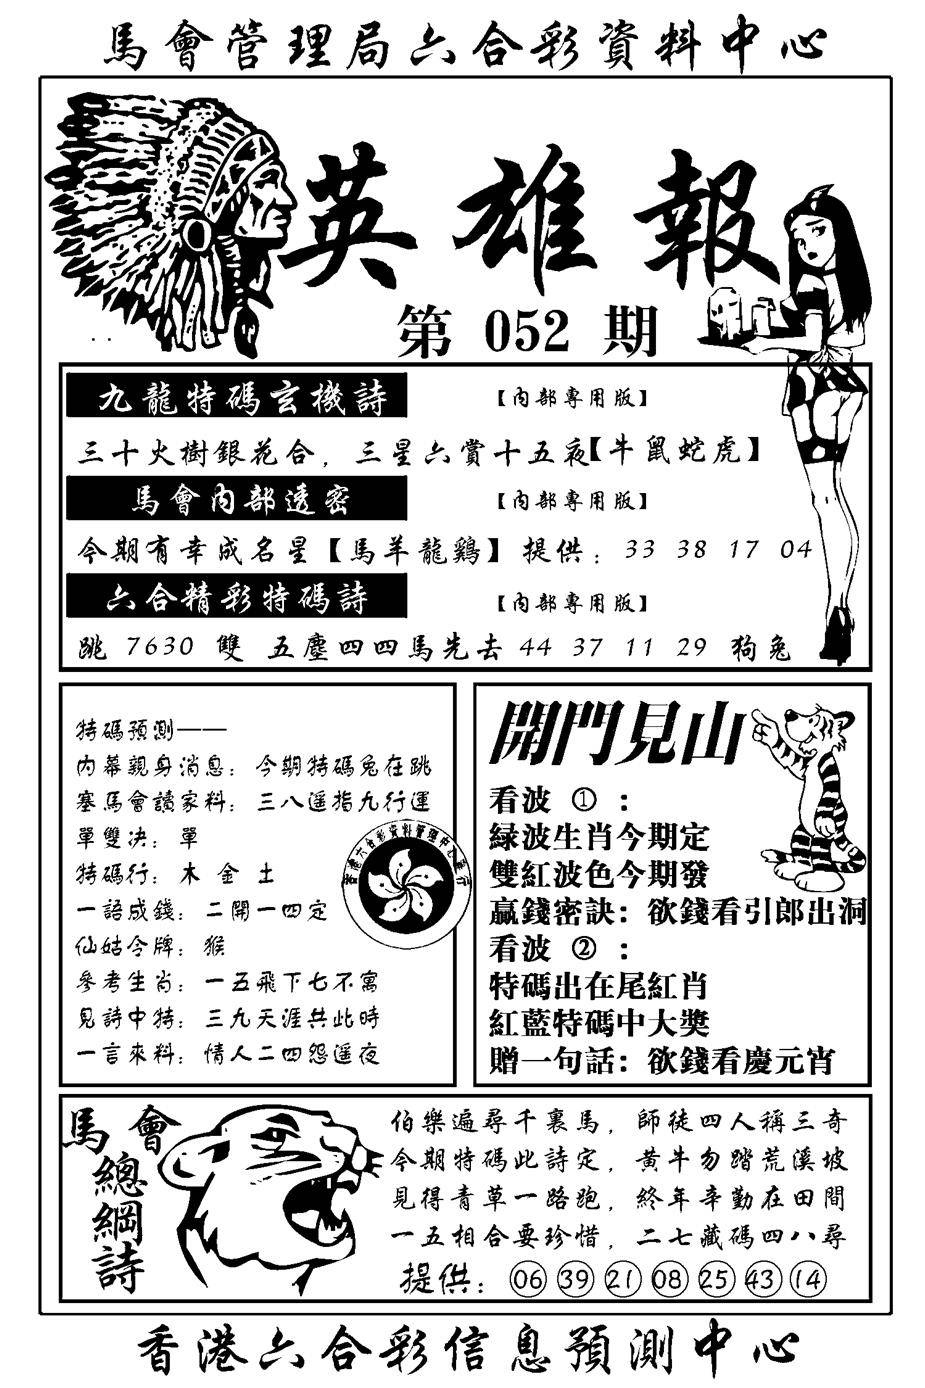 馬會管理局六合彩資料中心
英雄報
第 052 期
九龍特碼玄機詩 【內部專用版】
三十火樹銀花合，三星六賞十五夜【牛鼠蛇虎】
馬會內部透密 【內部專用版】
今期有幸成名星【馬羊龍鷄】提供：33 38 17 04
六合精彩特碼詩 【內部專用版】
跳 7630 雙 五塵四四馬先去 44 37 11 29 狗兔
特碼預測——
內幕親身消息：今期特碼兔在跳
塞馬會讀家料：三八遥指九行運
單雙决：單
特碼行：木 金 土
一語成錢：二開一四定
仙姑令牌：猴
參考生肖：一五飛下七不寓
見詩中特：三九天涯共此時
一言來料：情人二四怨遥夜
香港六合彩資料管理中心
開門見山
看波 ①：
緑波生肖今期定
雙紅波色今期發
贏錢密訣：欲錢看引郎出洞
看波 ②：
特碼出在尾紅肖
紅藍特碼中大獎
贈一句話：欲錢看慶元宵
馬會
總綱詩
伯樂遍尋千裏馬，師徒四人稱三奇
今期特碼此詩定，黄牛勿踏荒溪坡
見得青草一路跑，終年辛勤在田間
一五相合要珍惜，二七藏碼四八尋
提供：06 39 21 08 25 43 14
香港六合彩信息預測中心